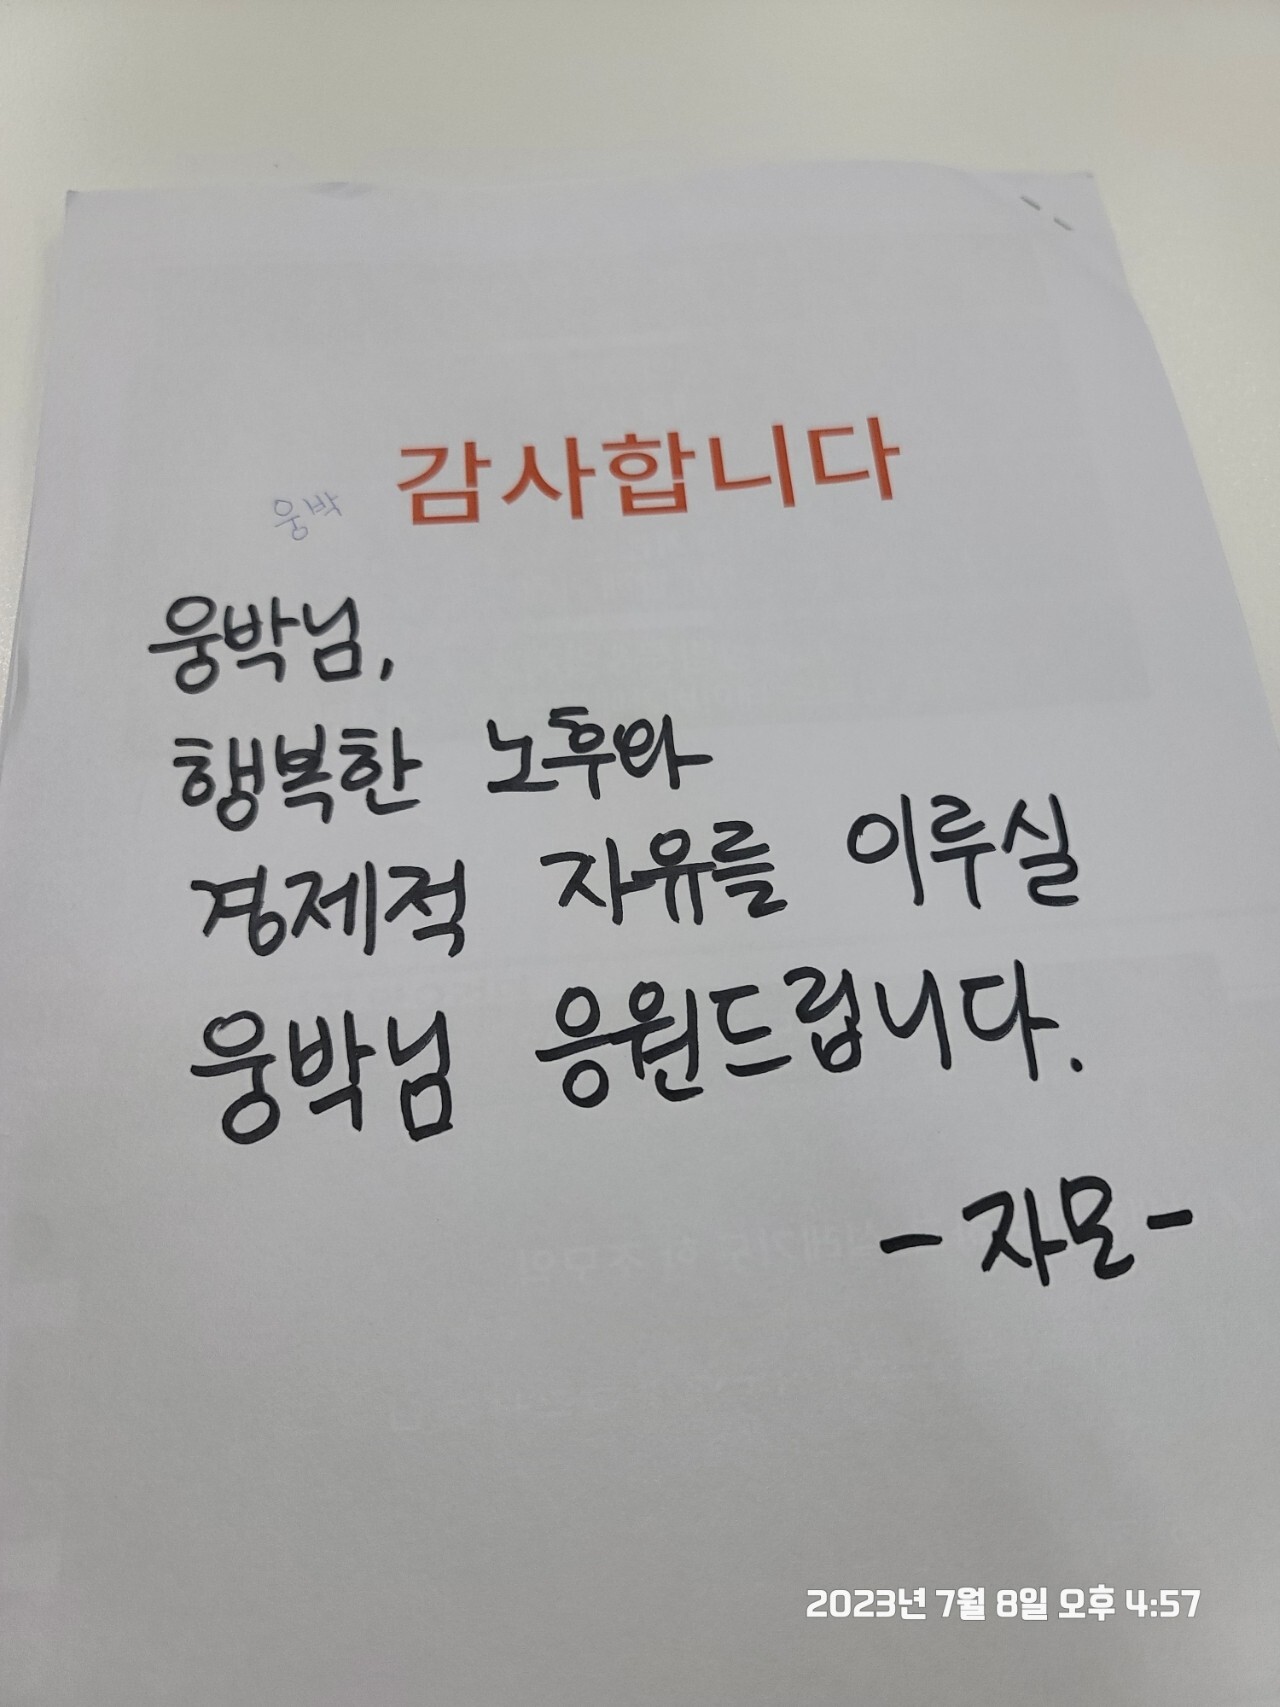 감사합니다
웅박
웅박님,
행복한 노후와
경제적 자유를 이루실
웅박님 응원드립니다.
-자모-
2023년 7월 8일 오후 4:57